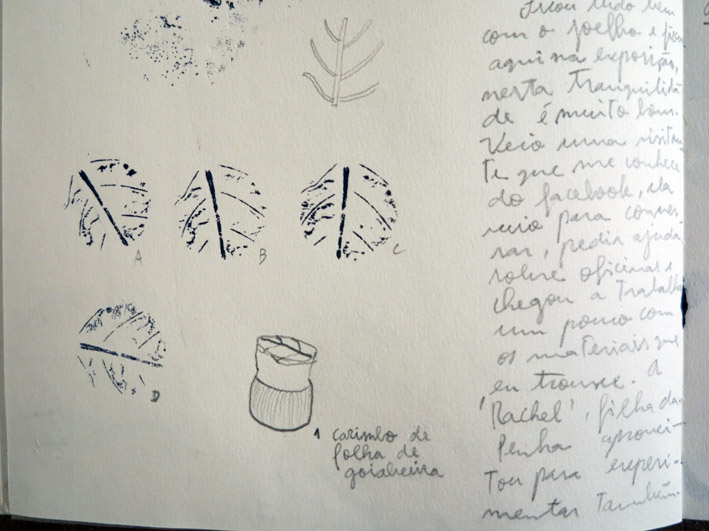 A
B
C
D
1 carimbo de
folha de
goiabeira
Ficou tudo bem
com o joelho e ficar
aqui na exposição,
nesta tranquilida
de é muito bom.
Veio uma visitan
te que me conhece
do facebook, ela
veio para conver
sar, pedir ajuda
sobre oficinas e
chegou a trabalhar
um pouco com
os materiais que
eu trouxe. A
'Rachel', filha da
Penha aprovei-
tou para experi-
mentar também.